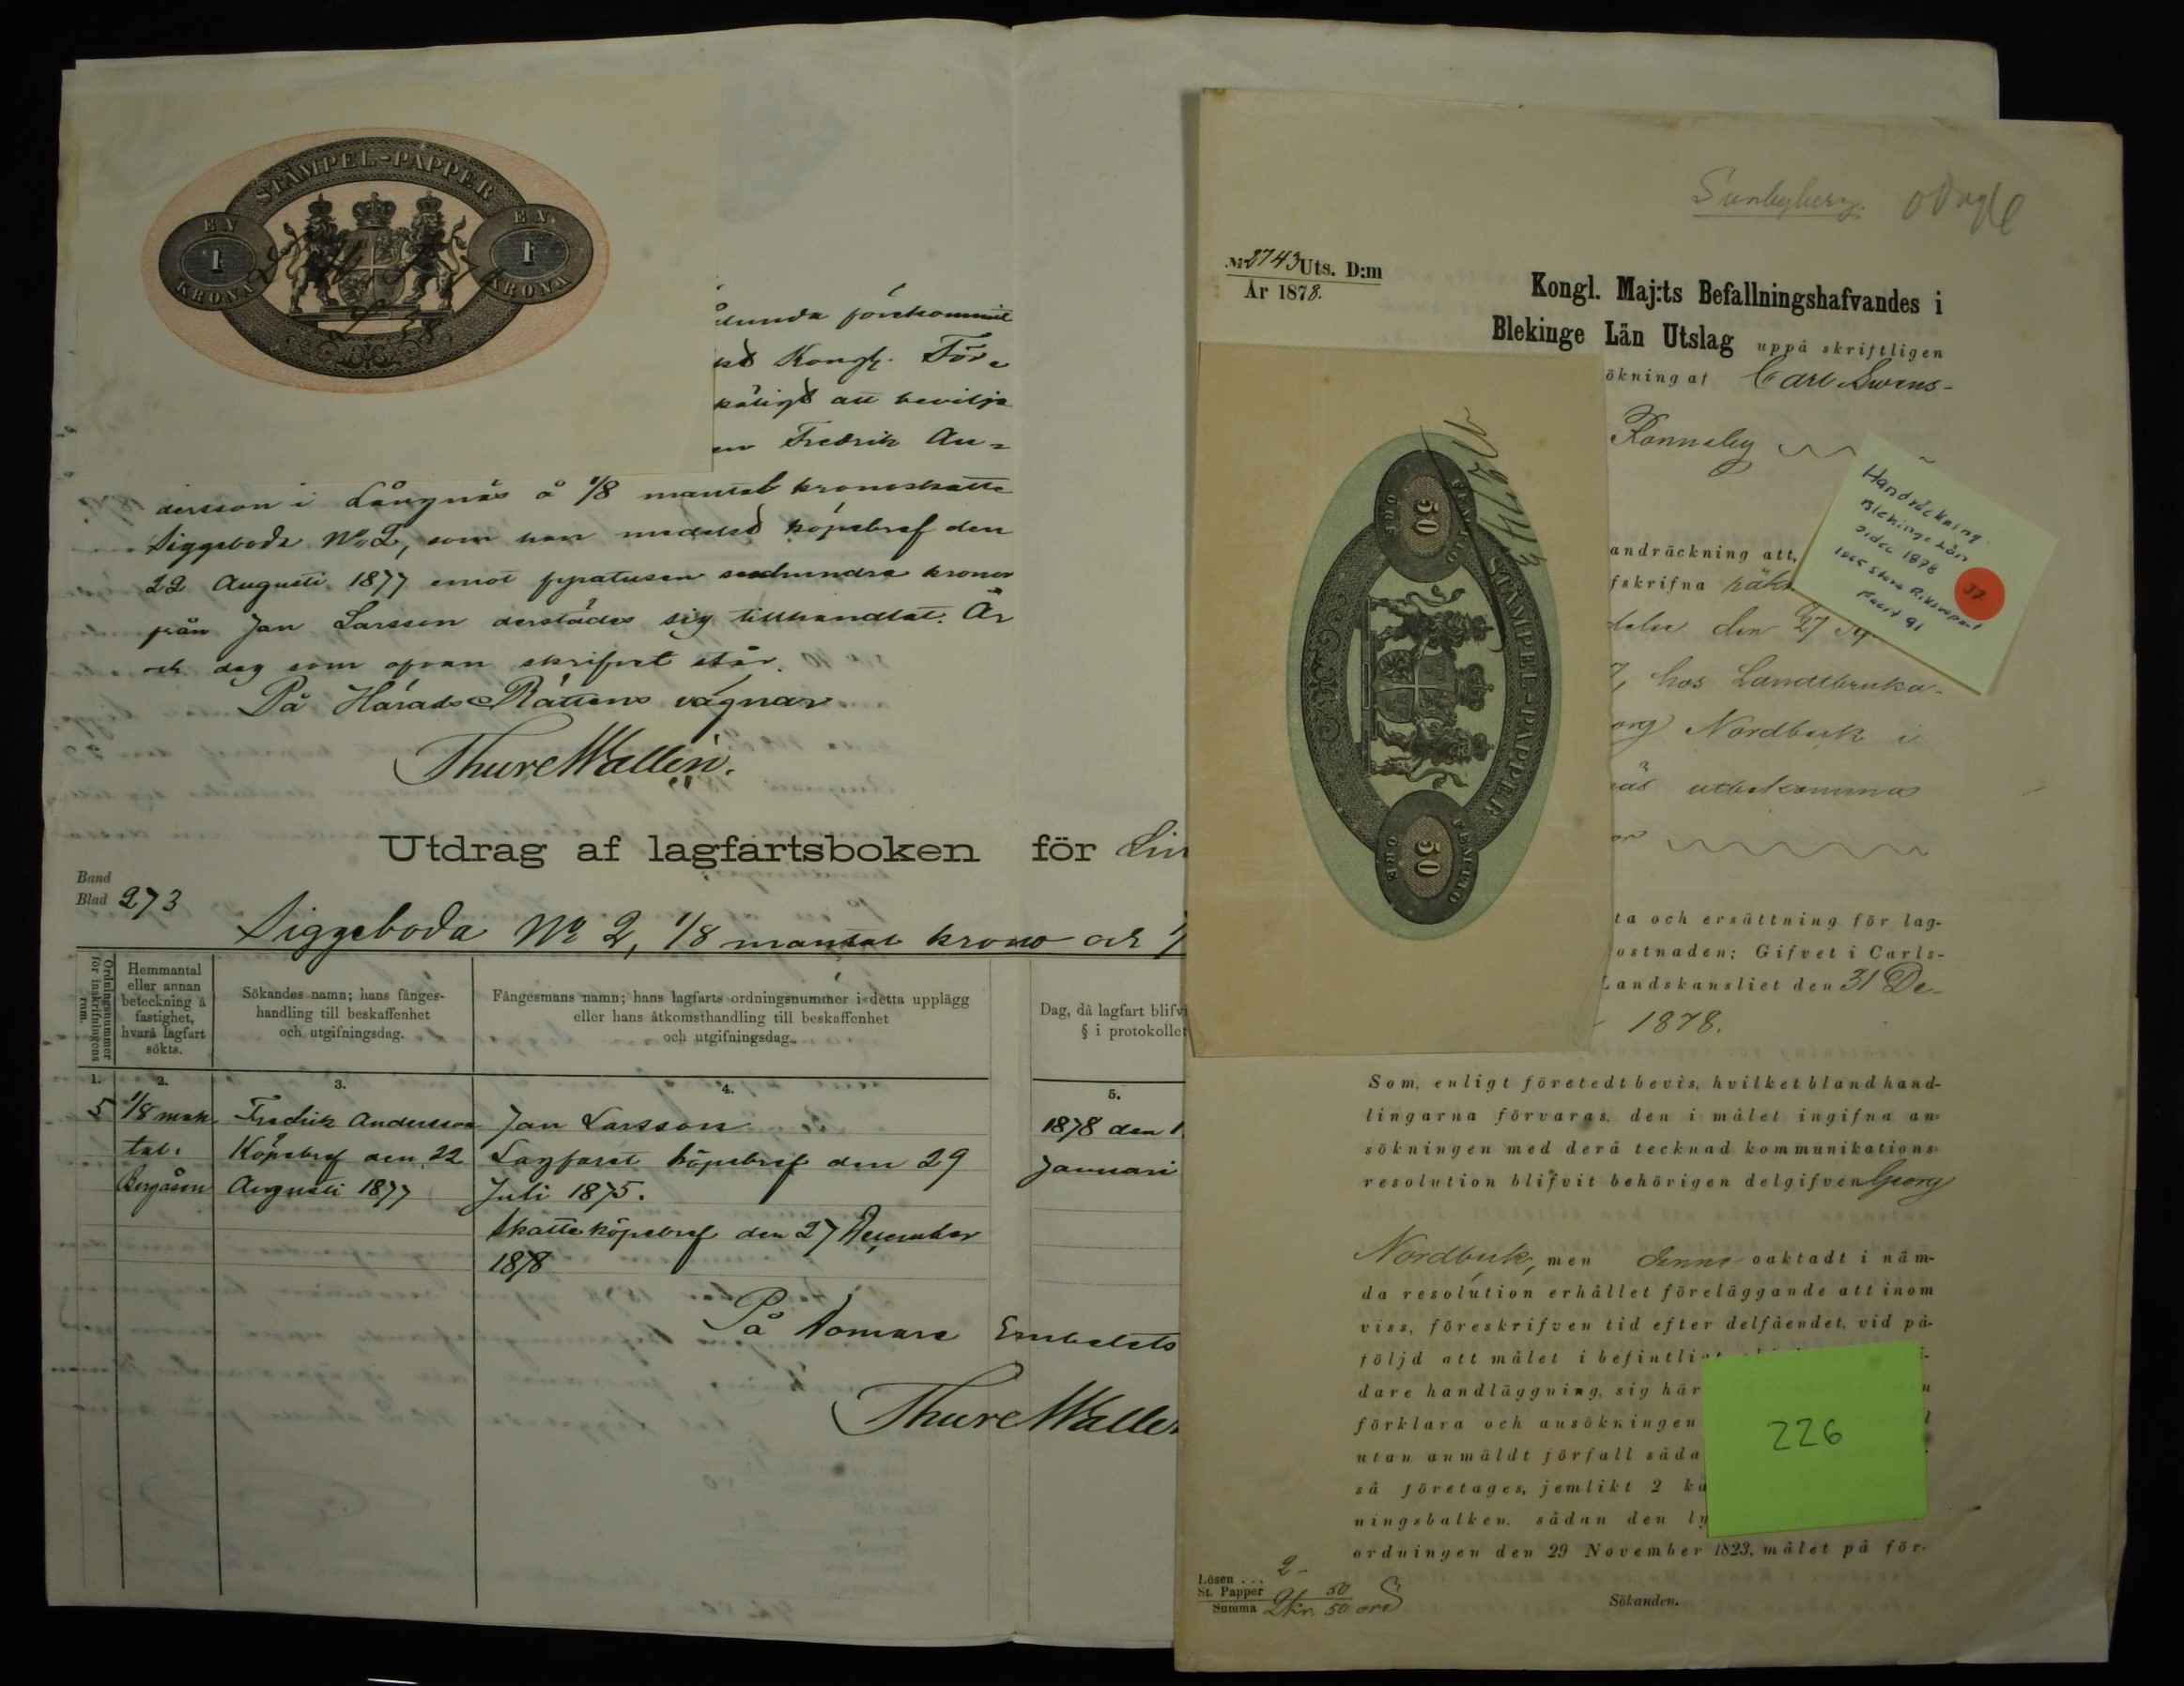 STÄMPEL-PAPPER
EN 1 KRONA
EN 1 KRONA
lunda förekommit
Kongl. Före
att bevilja
Fredrik An=
dersson i Långnäs å 1/8 mantal kronoskatte
Siggeboda No 2, som han medelst köpebref den
22 Augusti 1877 emot fyratusen sexhundra kronor
från Jan Larsson derstädes sig tillhandlat. År
och dag som ofvan skrifvet står.
På Härads Rättens vägnar
Thure Wallin.
Utdrag af lagfartsboken för Lin
Band
Blad 273
Siggeboda No 2, 1/8 mantal krono och
Ordningsnummer för inskrifningens rum.
Hemmantal eller annan beteckning å fastighet, hvarå lagfart sökts.
Sökandes namn; hans fånges-
handling till beskaffenhet
och utgifningsdag.
Fångesmans namn; hans lagfarts ordningsnummer i detta upplägg
eller hans åtkomsthandling till beskaffenhet
och utgifningsdag.
Dag, då lagfart blifvi
§ i protokollet
1. 2. 3. 4. 5.
5 1/8 man Fredrik Andersson Jan Larsson 1878 den 1
tal. Köpebref den 22 Lagfaret köpebref den 29 Januari
Bergåsen Augusti 1877 Juli 1875.
Skatteköpebref den 27 December
1878
På Domare Embetets
Thure Wallin
Sunbyberg.
No 2743 Uts. D:m
År 1878.
Kongl. Maj:ts Befallningshafvandes i
Blekinge Län Utslag uppå skriftligen
ökning af Carl Svens-
Ronneby
andräckning att,
fskrifna räk
den 27
hos Landtbruka-
org Nordbuk i
näs utbekomma
or
ta och ersättning för lag-
ostnaden; Gifvet i Carls-
Landskansliet den 31 De-
1878.
Handräckning
Blekinge Län
sidec 1878
1885 Stora Riksvapnet
Facit 91
37
FEMTIO 50 ÖRE
STÄMPEL-PAPPER
FEMTIO 50 ÖRE
Som, enligt företedt bevis, hvilket bland hand-
lingarna förvaras, den i målet ingifna an-
sökningen med derå tecknad kommunikations-
resolution blifvit behörigen delgifven Georg
Nordbuk, men denne oaktadt i näm-
da resolution erhållet föreläggande att inom
viss, föreskrifven tid efter delfåendet, vid på-
följd att målet i befintligt
dare handläggning, sig här
förklara och ansökningen
utan anmäldt förfall såda
så företages, jemlikt 2 ka
ningsbalken. sådan den ly
ordningen den 29 November 1823, målet på för-
226
Lösen . . . 2 -
St. Papper 50
Summa 2 kr. 50 öre
Sökanden.